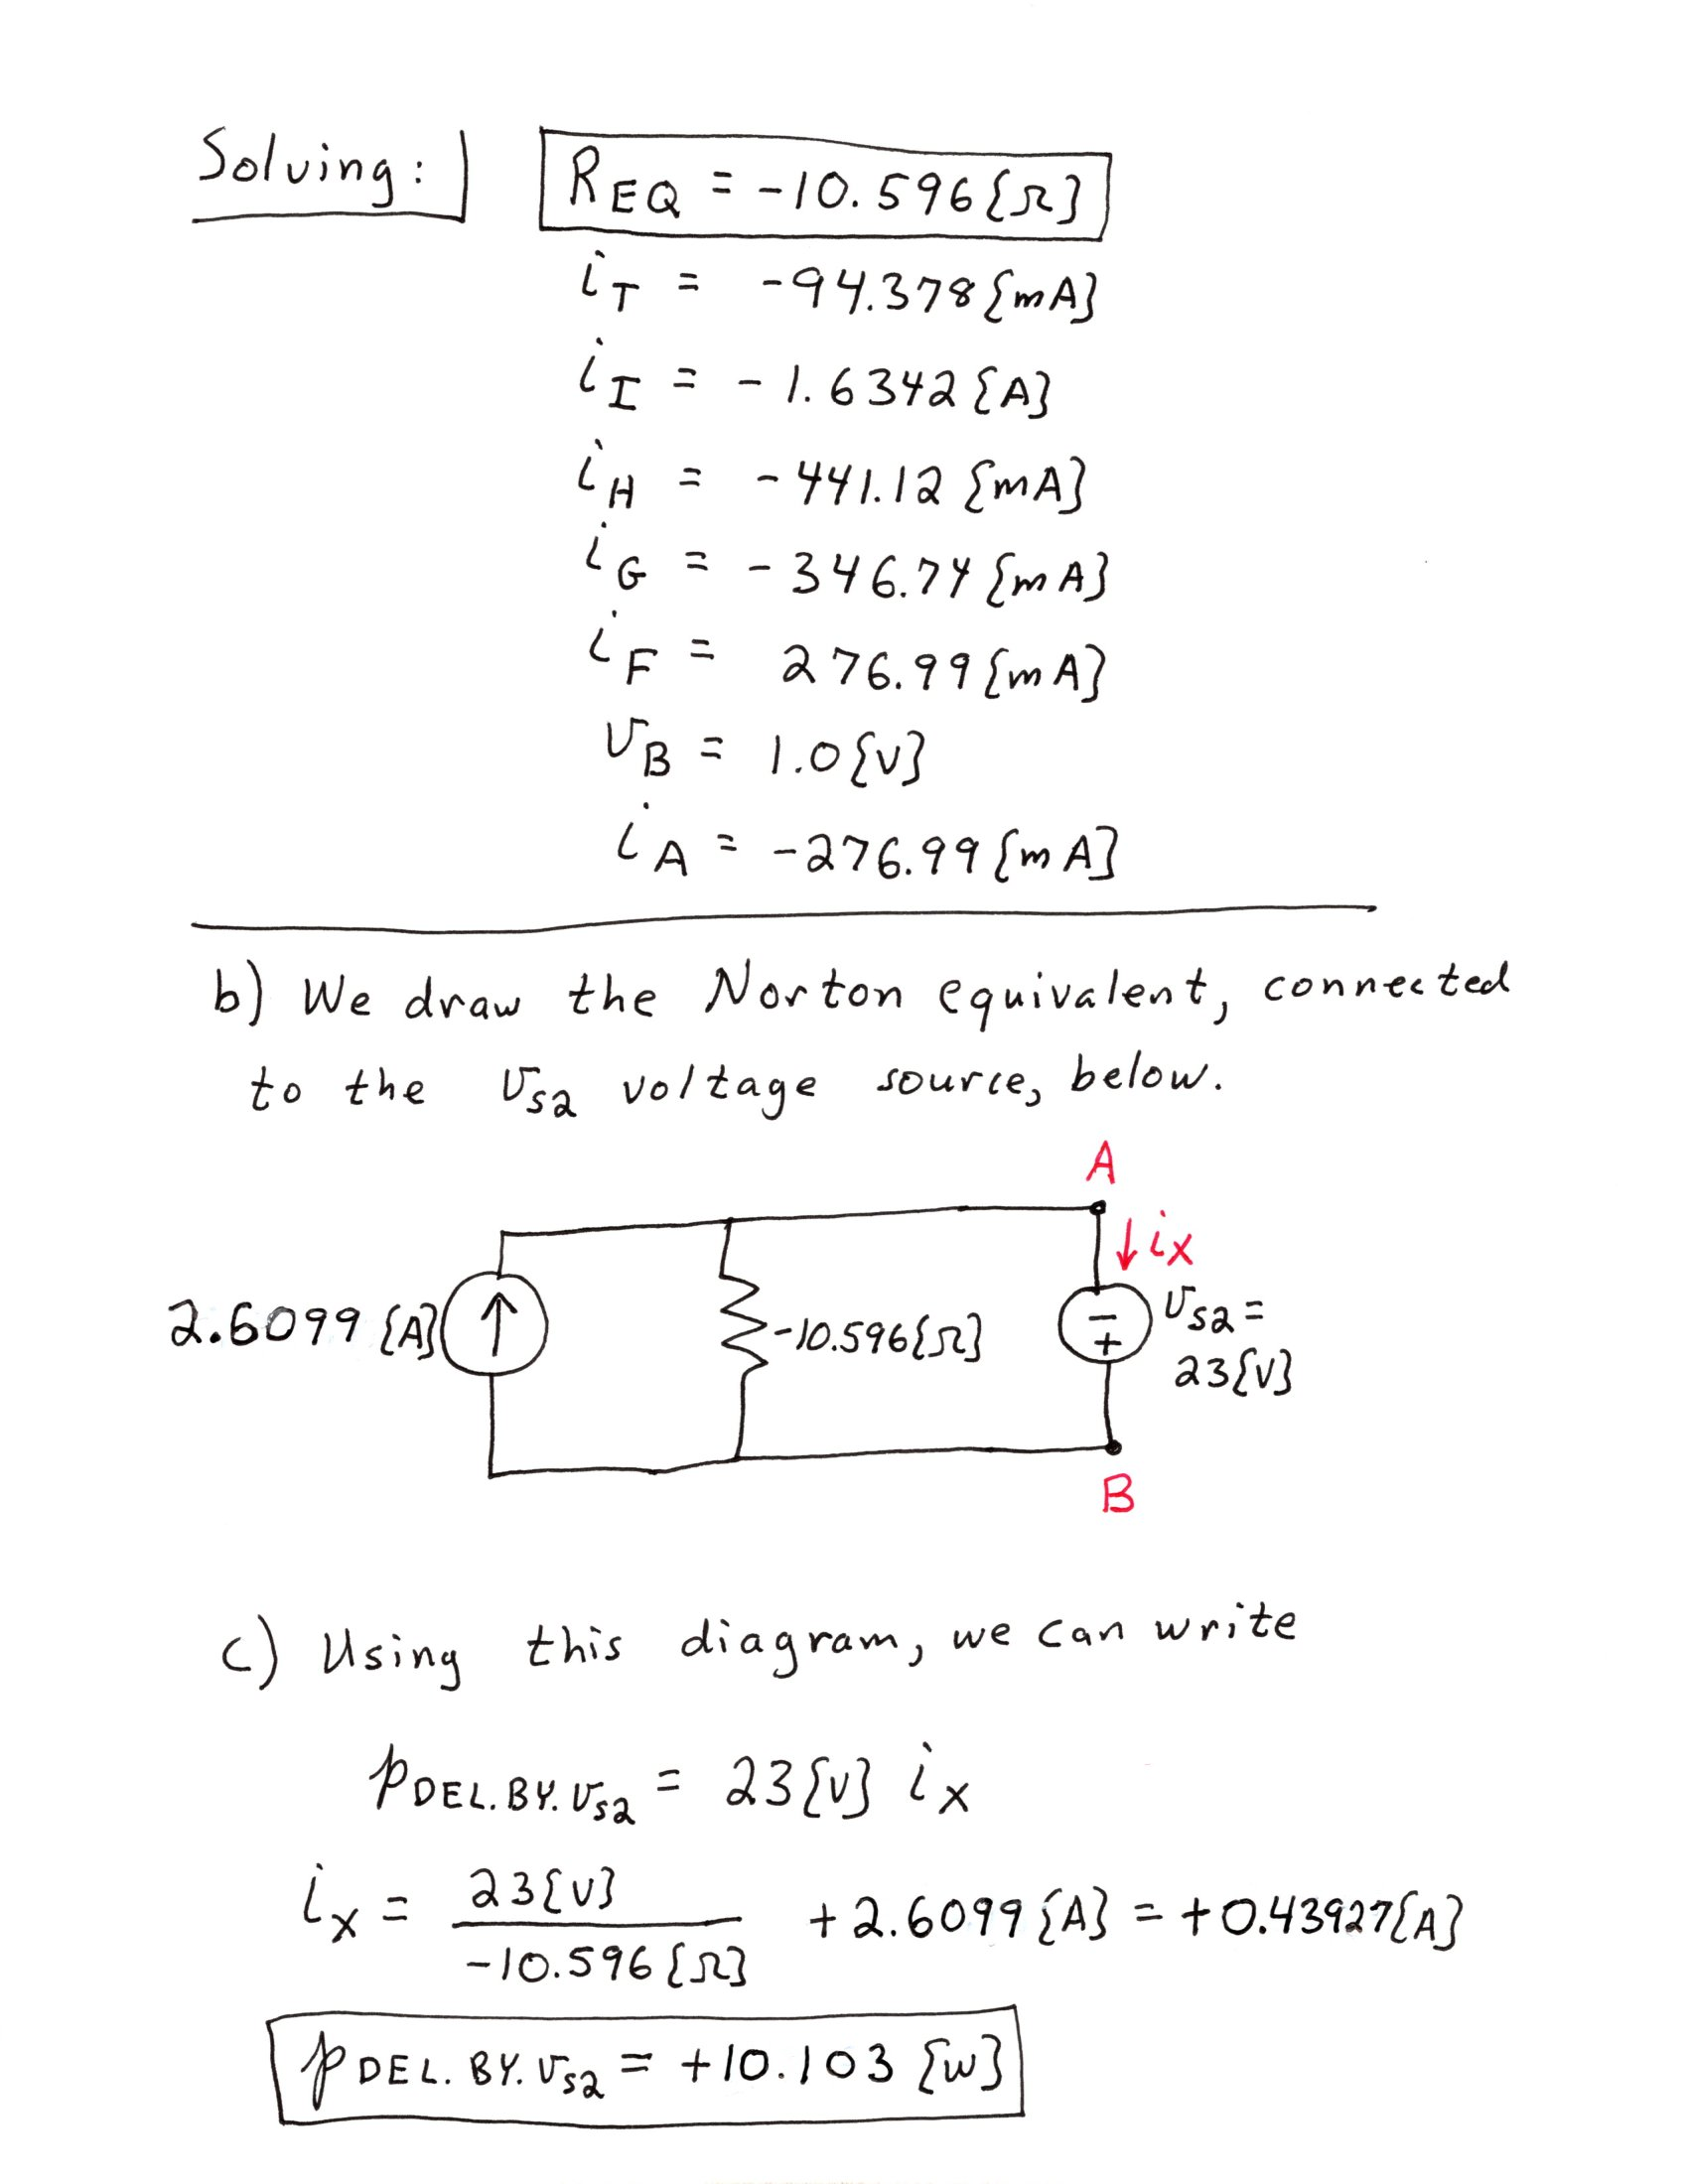 Solving:
R_EQ = -10.596{Ω}
i_T = -94.378{mA}
i_I = -1.6342{A}
i_H = -441.12{mA}
i_G = -346.74{mA}
i_F = 276.99{mA}
v_B = 1.0{V}
i_A = -276.99{mA}
b) We draw the Norton equivalent, connected
to the v_s2 voltage source, below.
A
i_X
2.6099{A}
-10.596{Ω}
-
+
v_s2 =
23{V}
B
c) Using this diagram, we can write
p_DEL.BY.v_s2 = 23{V} i_X
i_X = 23{V} / -10.596{Ω} + 2.6099{A} = +0.43927{A}
p_DEL.BY.v_s2 = +10.103{W}